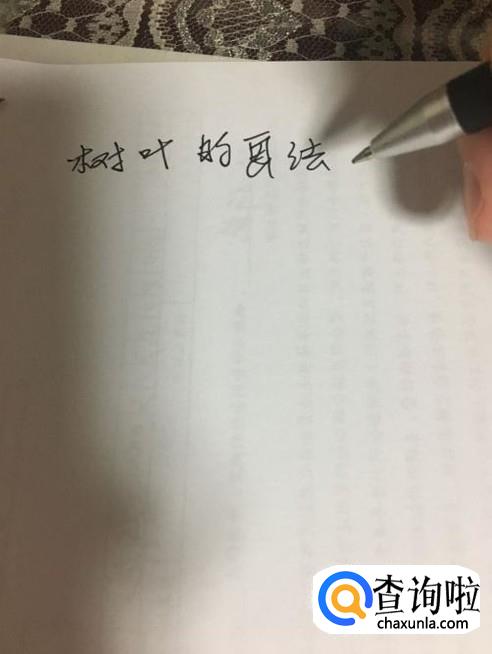 树叶的写法
查询啦
chaxunla.com